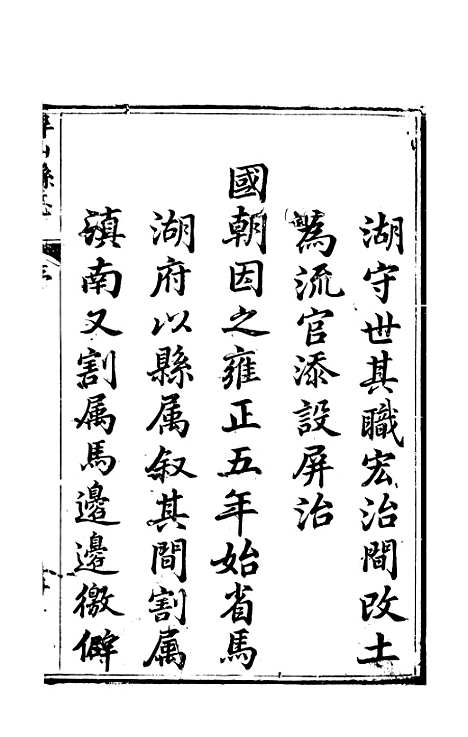 湖守世其職宏治間改土
為流官添設屏治
國朝因之雍正五年始省馬
湖府以縣属叙其間割属
滇南又割属馬邊邊徼僻
屏山縣志